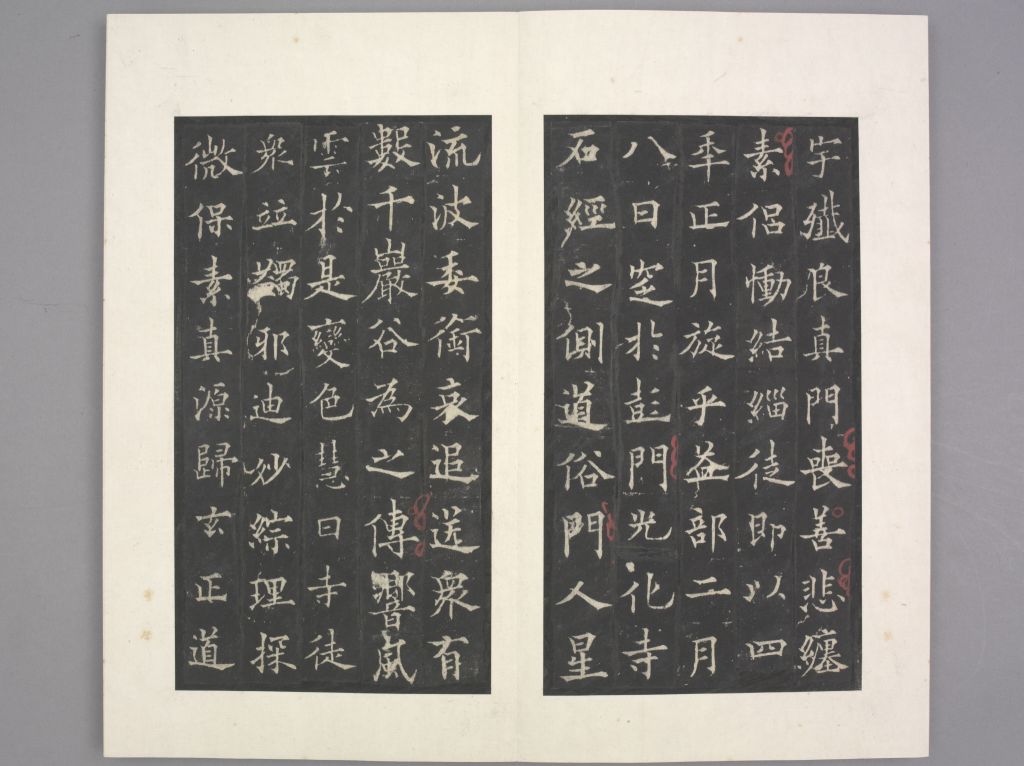 宇殲良真門喪善悲纏
素侶慟結緇徒即以四
年正月旋乎益部二月
八日窆於彭門光化寺
石經之側道俗門人星
流波委銜哀追送衆有
數千巖谷為之傳響風
雲於是變色慧日寺徒
衆並蠲邪迪妙綜理探
微保素真源歸玄正道